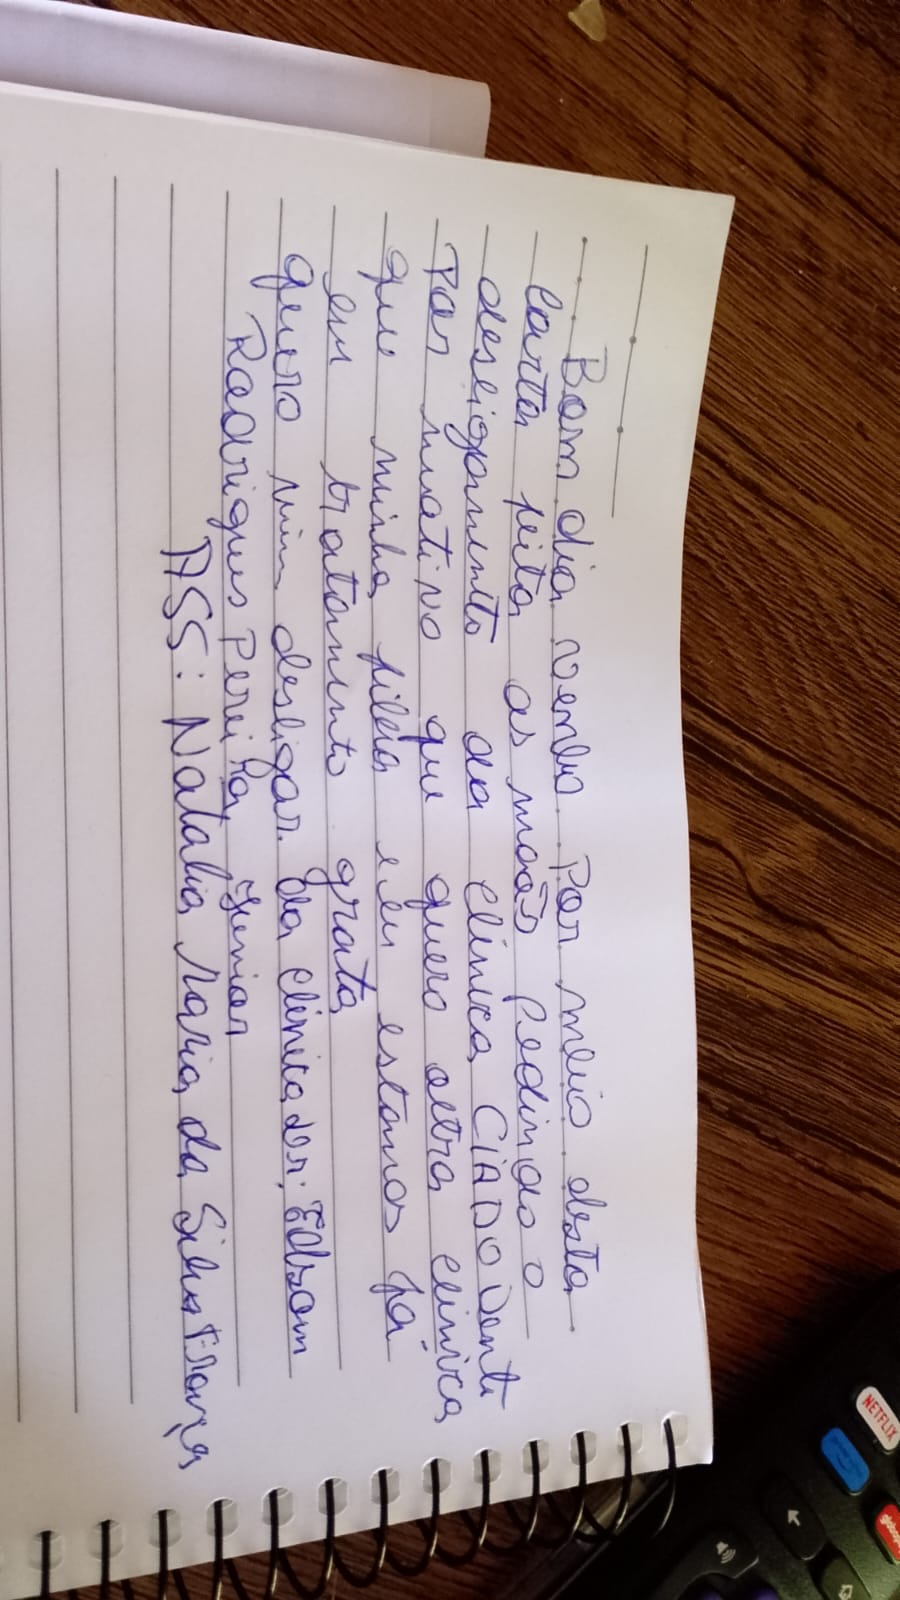 Bom dia venho Por meio desta
Carta feita as mãos Pedindo o
desligamento da Clínica CIADODenti
Por muativo que quero outra clínica
que minha filha e eu estamos fa
em tratamento grata
quero mim desligar da clínica Der: Edsom
Rodrigues Pereira Junior
ASS: Natalia Maria da Silva França
NETFLIX
prime video
globoplay